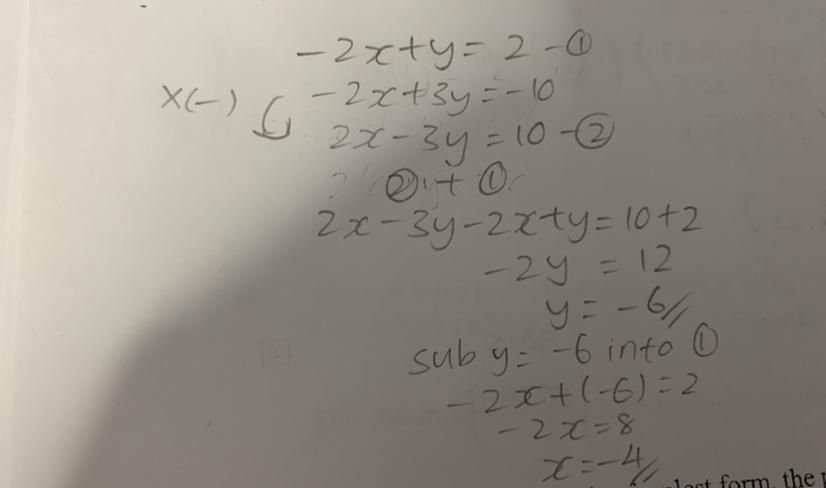 -2x+y= 2 -①
x(-) -2x+3y=-10
2x-3y=10-②
②+①
2x-3y-2x+y=10+2
-2y = 12
y=-6//
sub y=-6 into ①
-2x+(-6)=2
-2x=8
x=-4//
form, the